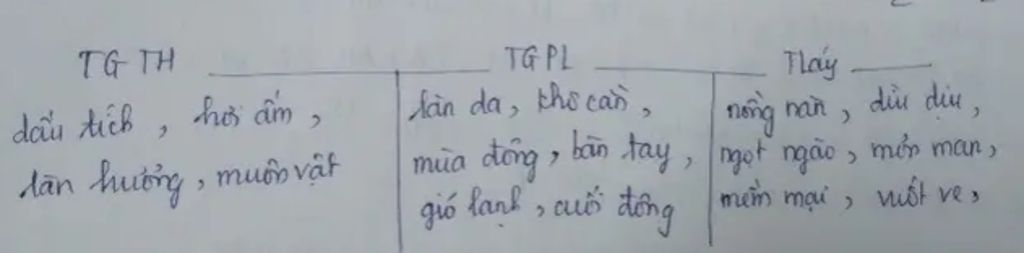 TG TH TGPL TLáy
dấu tích, hơi ấm, làn da, khô cằn, nồng nàn, dìu dịu,
làn hương, muôn vật mùa đông, bàn tay, ngọt ngào, mơn man,
gió lạnh, cuối đông mềm mại, vuốt ve,